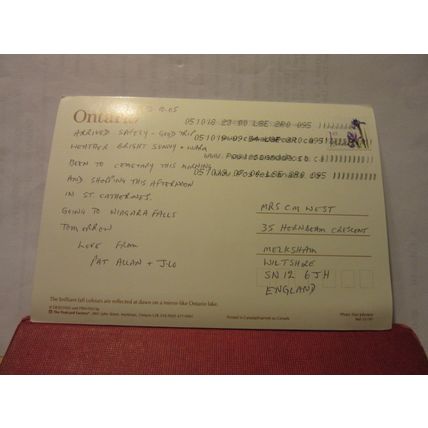 Ontario
051018 23 00 L8E 2R0 095
ARRIVED SAFELY - GOOD TRIP
WEATHER BRIGHT SUNNY + WARM
BEEN TO CEMETARY THIS MORNING
AND SHOPPING THIS AFTERNOON
IN ST. CATHERINES.
GOING TO NIAGARA FALLS
TOMORROW
LOVE FROM
PAT ALLAN +
MRS C M WEST
35 HORNBEAM CRESCENT
MELKSHAM
WILTSHIRE
SN12 6JH
ENGLAND
The brilliant fall colours are reflected at dawn on a mirror-like Ontario lake.
The Postcard Factory
Printed in Canada